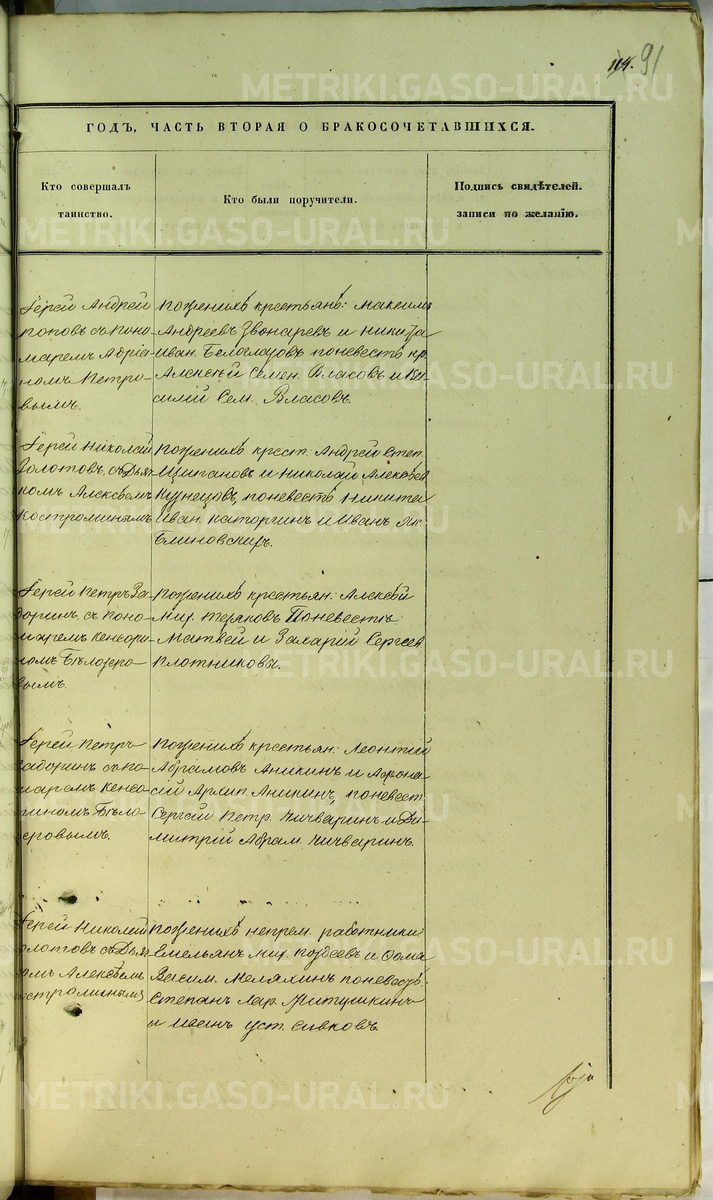 114. 91
ГОДЪ, ЧАСТЬ ВТОРАЯ О БРАКОСОЧЕТАВШИХСЯ.
Кто совершалъ
таинство.
Кто были поручители.
Подпись свидѣтелей.
записи по желанію.
Іерей Андрей
Поповъ съ Поно-
маремъ Адріа-
номъ Петро-
вымъ.
Поженихѣ крестьянѣ: Максимъ
Андреевъ Звонаревъ и Никита
Иван. Белоглазовъ поневестѣ кр.
Алексѣй Семен. Власовъ и Ва-
силій Сем. Власовъ
Іерей Николай
Золотовъ, съ Дьяч-
комъ Алексѣемъ
Костроминымъ
Поженихѣ крест. Андрей Степ.
Цыгановъ и Николай Алексѣев
Кузнецовъ, поневестѣ Никита
Иван. Каторгинъ и Иванъ Як.
Блиновскихъ.
Іерей Петръ За-
доринъ съ Поно-
маремъ Кенсори-
номъ Бѣлозеро-
вымъ.
Поженихѣ крестьян. Алексѣй
Мих. Поневестѣ
Матвей и Захарій Сергеев
Плотниковы.
Іерей Петръ
Задоринъ съ По-
маремъ Кенсо-
риномъ Бѣло-
зеровымъ.
Поженихѣ крестьян. Леонтій
Абрамовъ Аникинъ и Афона-
сій Архип. Аникинъ, поневест.
Сергей Петр. Чичваринъ и Ди-
митрій Абрам. Чичваринъ.
Іерей Николай
Золотовъ съ Дьяч-
комъ Алексѣемъ
Костроминымъ
Поженихѣ непрем. работники
Емельянъ Мих. Поздеевъ и Фома
Васил. поневестѣ
Степанъ Лар. Митушкинъ
и Иванъ Уст. Сивковъ.
METRIKI.GASO-URAL.RU